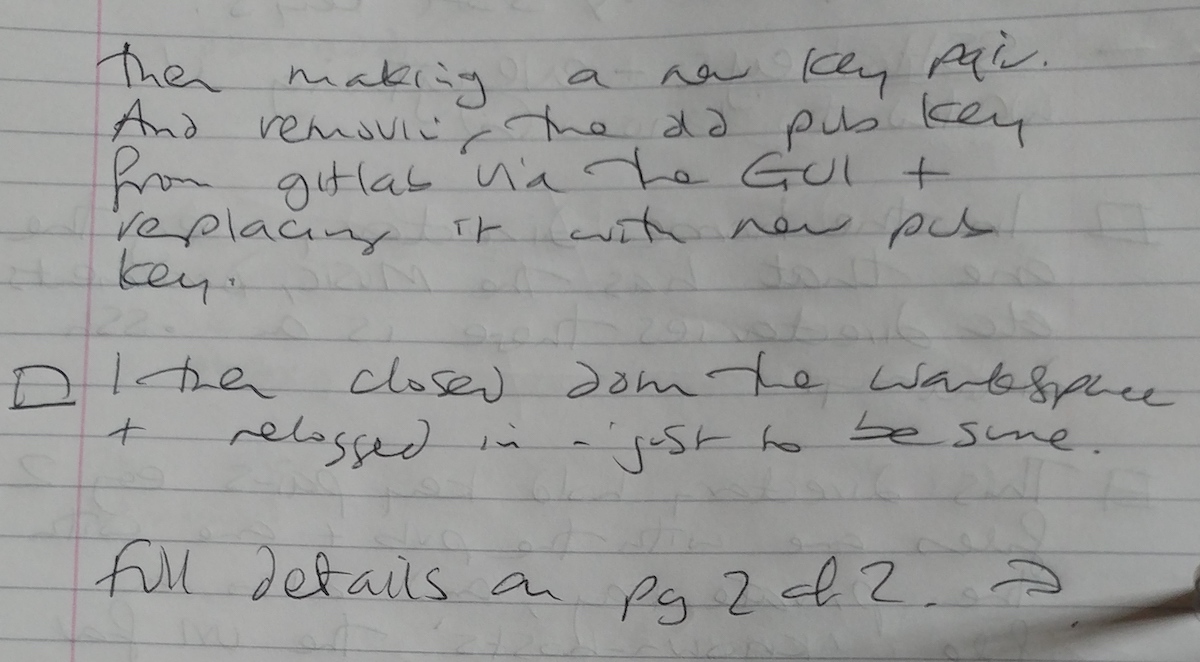 then making a new key pair.
And removing the old pub key
from gitlab via the GUI +
replacing it with new pub
key.
☐ I then closed down the workspace
+ relogged in - just to be sure.
full details on pg 2 of 2. →